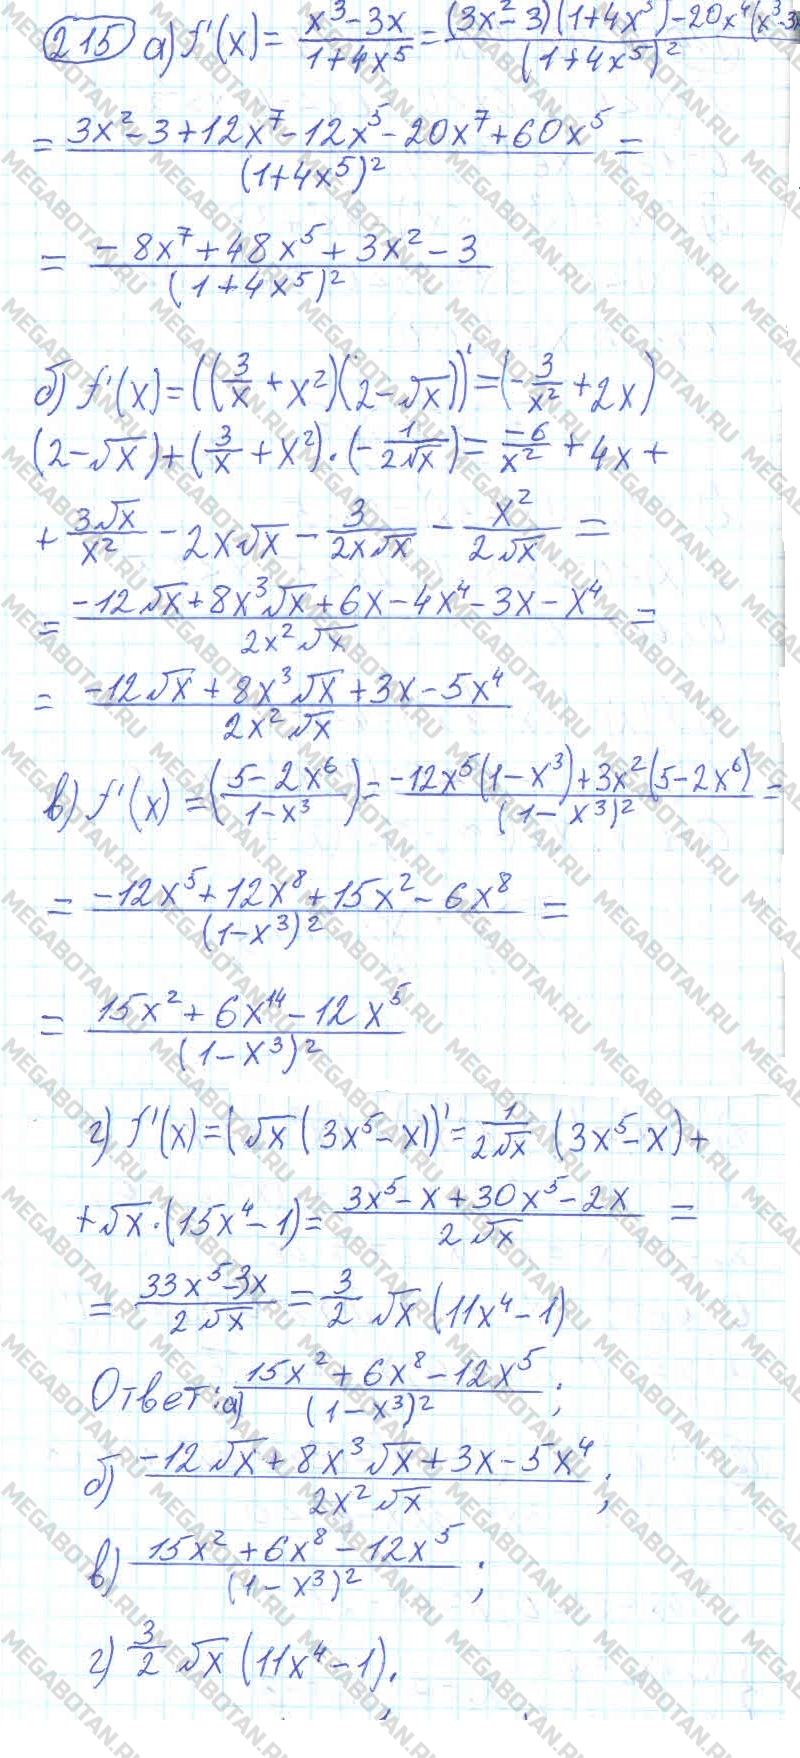 215 а) f'(x) = (x³-3x)/(1+4x⁵) = ((3x²-3)(1+4x⁵)-20x⁴(x³-3x))/(1+4x⁵)²
= (3x²-3+12x⁷-12x⁵-20x⁷+60x⁵)/(1+4x⁵)² =
= (-8x⁷+48x⁵+3x²-3)/(1+4x⁵)²
б) f'(x) = ((3/x + x²)(2-√x))' = (-3/x² + 2x)
(2-√x)+(3/x + x²)·(-1/(2√x)) = -6/x² + 4x +
+ 3√x/x² - 2x√x - 3/(2x√x) - x²/(2√x) =
= (-12√x+8x³√x+6x-4x⁴-3x-x⁴)/(2x²√x) =
= (-12√x+8x³√x+3x-5x⁴)/(2x²√x)
в) f'(x) = ((5-2x⁶)/(1-x³)) = (-12x⁵(1-x³)+3x²(5-2x⁶))/(1-x³)² =
= (-12x⁵+12x⁸+15x²-6x⁸)/(1-x³)² =
= (15x²+6x¹⁴-12x⁵)/(1-x³)²
г) f'(x) = (√x(3x⁵-x))' = 1/(2√x) (3x⁵-x)+
+√x·(15x⁴-1) = (3x⁵-x+30x⁵-2x)/(2√x) =
= (33x⁵-3x)/(2√x) = 3/2 √x (11x⁴-1)
Ответ: а) (15x²+6x⁸-12x⁵)/(1-x³)²;
б) (-12√x+8x³√x+3x-5x⁴)/(2x²√x);
в) (15x²+6x⁸-12x⁵)/(1-x³)²;
г) 3/2 √x (11x⁴-1).
MEGABOTAN.RU